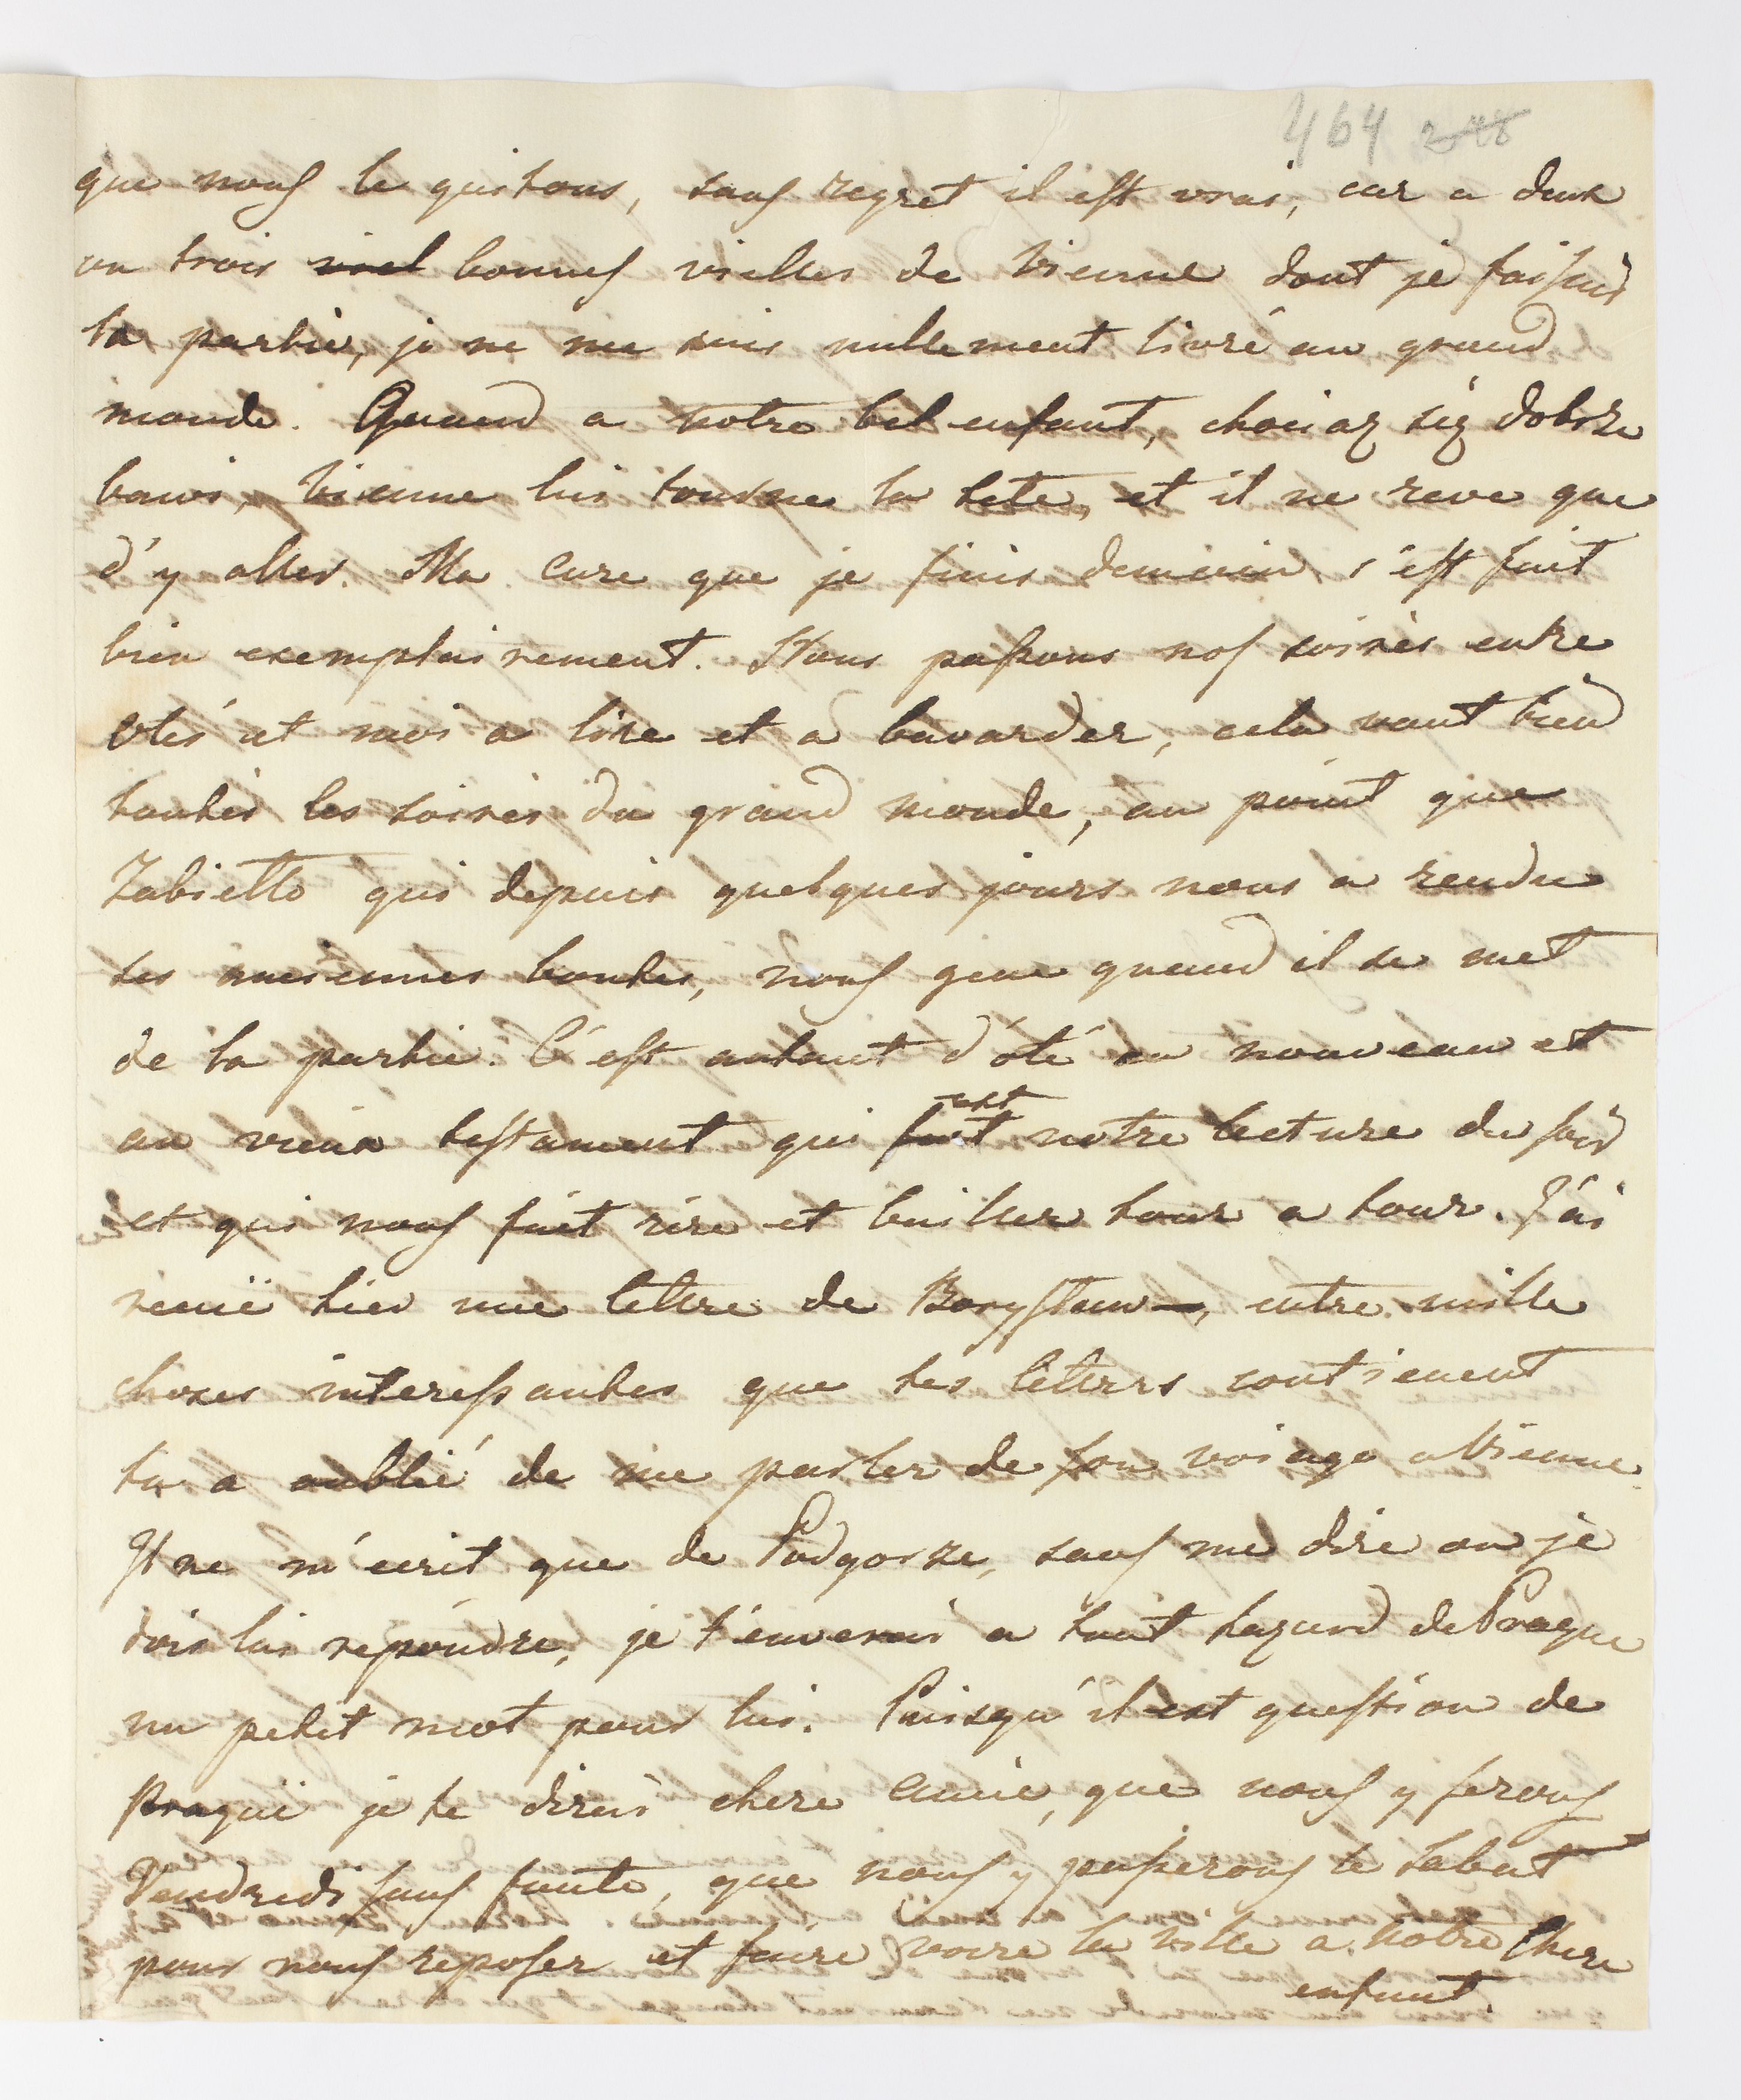 464 248
que nous le quitons, sans regret il est vrai, car a deux
ou trois viel bonnes vielles de Vienne dont je faisais
la partie, je ne me suis nullement livré au grand
monde. Quand a notre bel enfant, chociaz się dobrze
bawi, Vienne lui tourne la tete, et il ne reve que
d'y aller. Ma cure que je finis demain s'est fait
bien exemplairement. Nous passons nos soirées entre
et moi a lire et a bavarder, cela vaut bien
toutes les soirées du grand monde, au point que
Zabiello qui depuis quelques jours nous a rendu
ses anciennes bontes, nous gene quand il se met
de la partie. C'est autant d'oté au nouveau et
au vieux testament qui fait est notre lecture du soir
et qui nous fait rire et bailler tour a tour. J'ai
recuë hier une lettre de Borystaw, entre mille
choses interessantes que ses lettres contienent
tu a oublié de me parler de son voiage a Vienne.
Il ne m'ecrit que de Podgorze, sans me dire ou je
dois lui repondre, je t'enverai a tout hazard de Prague
un petit mot pour lui. Puisqu'il est question de
Prague je te dirai chere amie, que nous y serons
Vendredi sans faute, que nous y passerons le Sabat
pour nous reposer et faire voire la ville a notre chere
enfant.